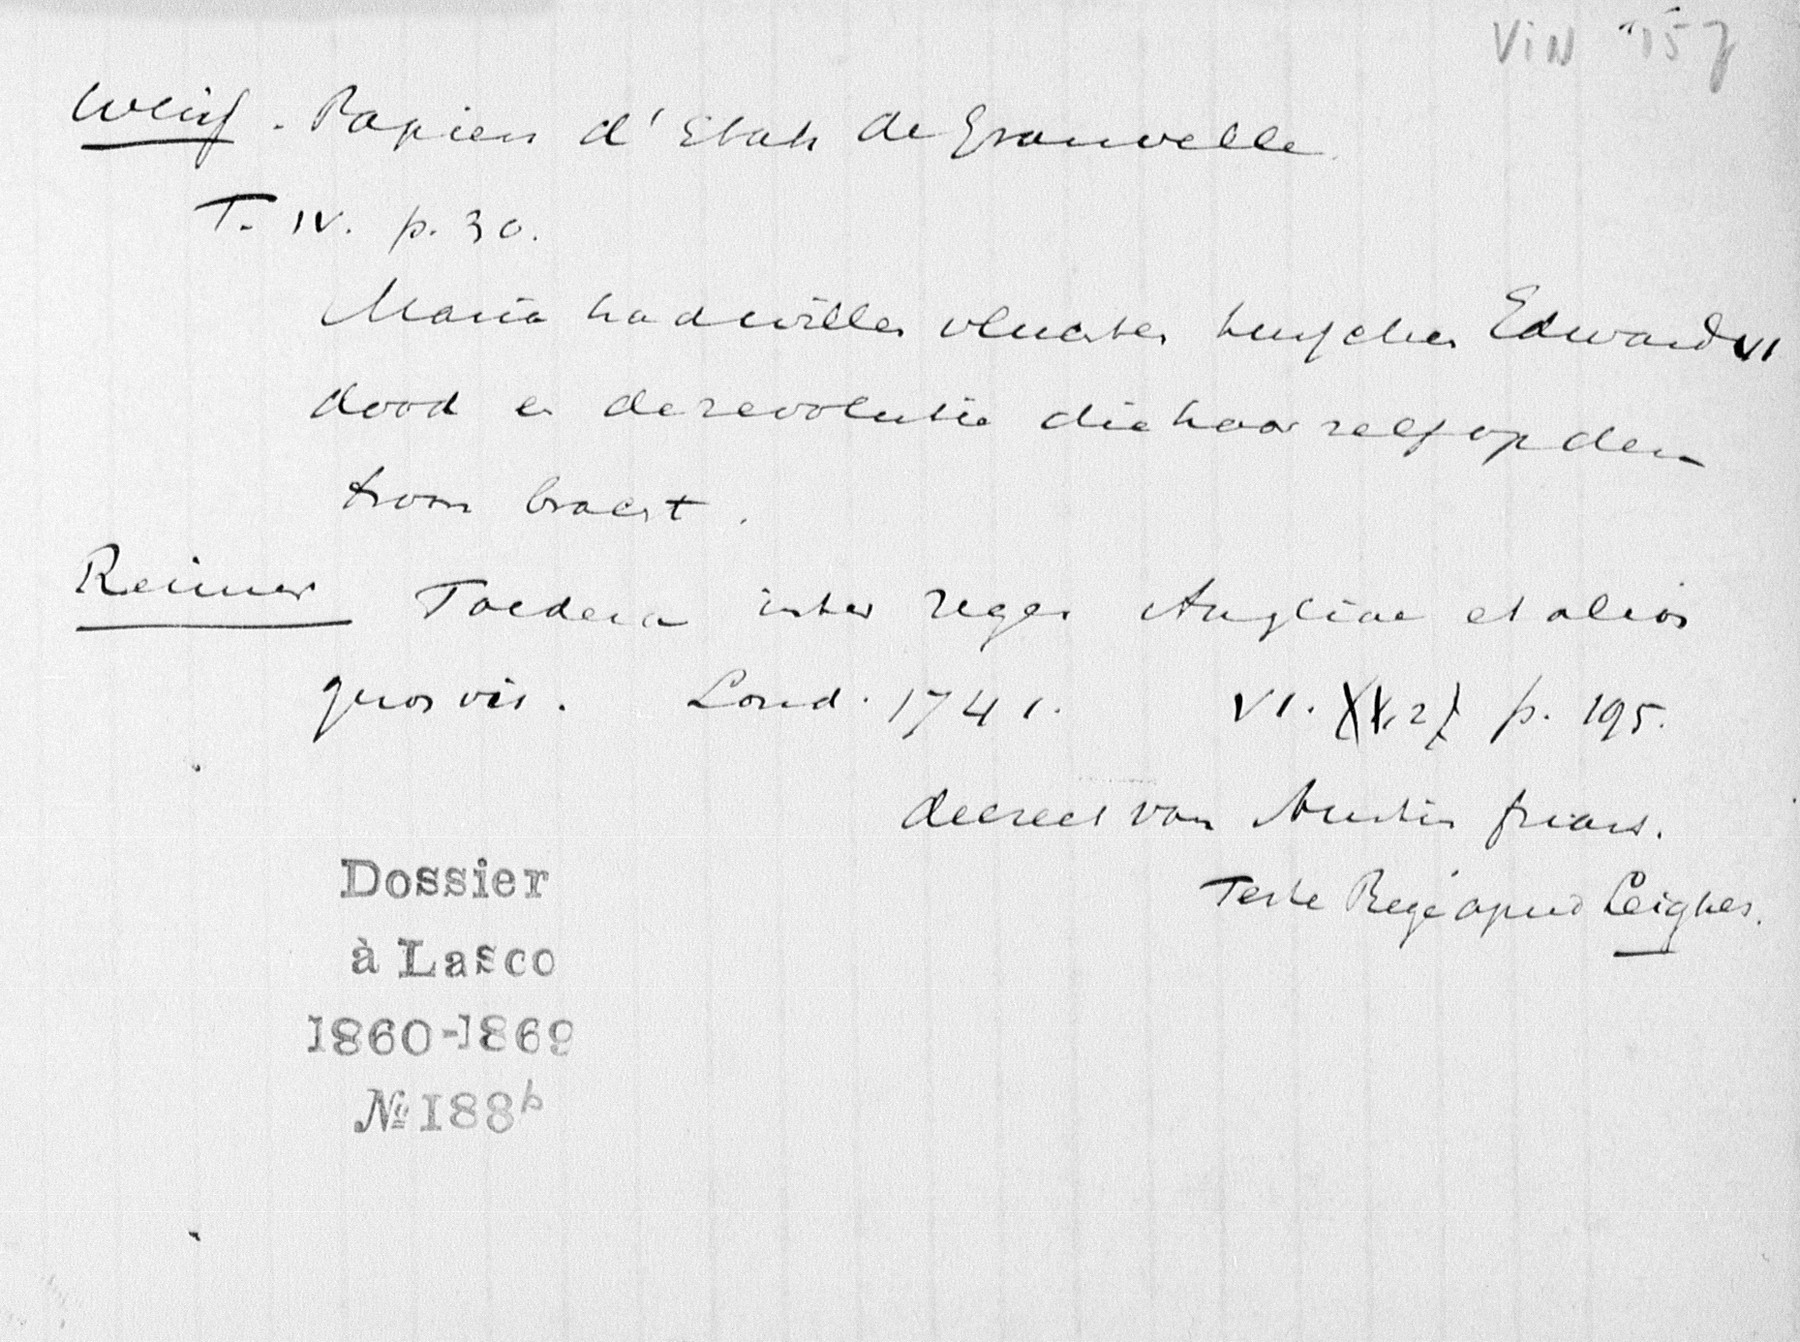 VIN 157
Weiss - Papiers d'Etats de Granvelle
T. IV. p. 30.
Maria had willen vluchten tusschen Edward VI
dood en de revolutie die haar zelf op den
troon bracht.
Reimer Foedera inter reges Angliae et alios
quosvis. Lond. 1741. VI. p. 195.
decreet van Austin friars.
Teste Rege apud Leighes.
Dossier
à Lasco
1860-1869
№ 188b